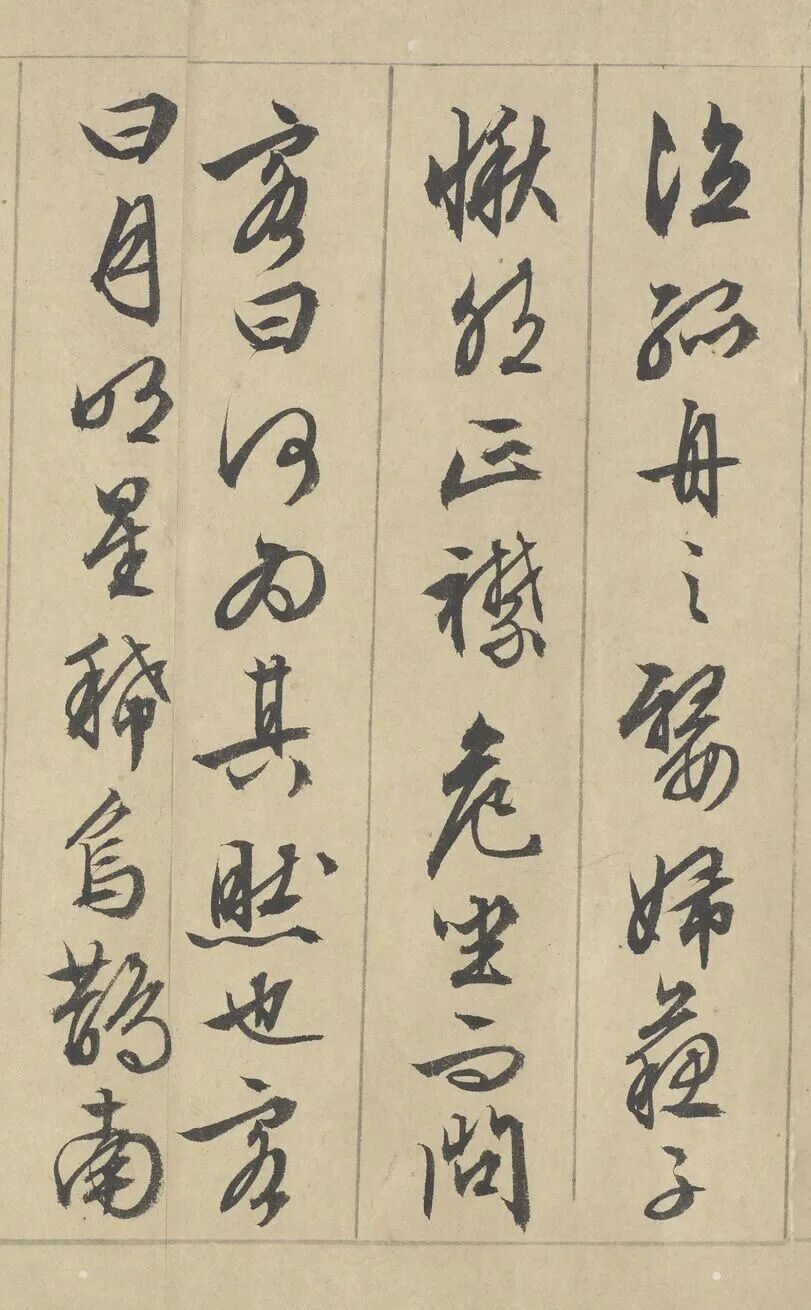 泣孤舟之嫠婦蘇子
愀然正襟危坐而問
客曰何為其然也客
曰月明星稀烏鵲南